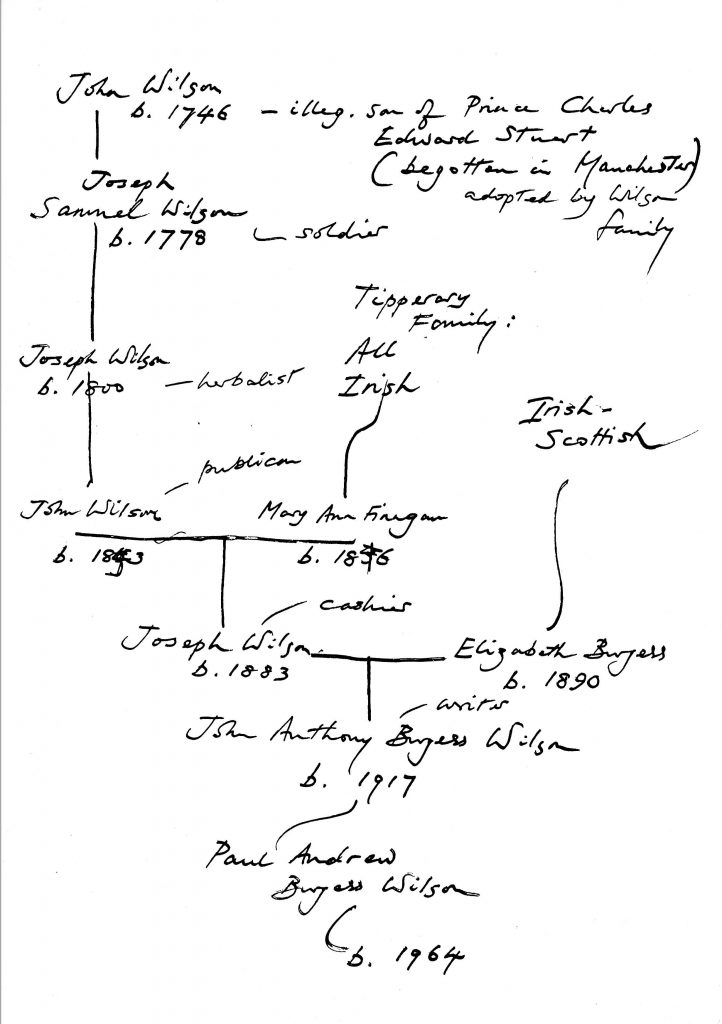 John Wilson
b. 1746 – illeg. son of Prince Charles
Edward Stuart
(begotten in Manchester)
adopted by Wilson
family
Joseph
Samuel Wilson
b. 1778 – soldier
Tipperary
Family:
All
Irish
Joseph Wilson
b. 1800 – herbalist
Irish-
Scottish
publican
John Wilson
Mary Ann Finegan
b. 1843
b. 1856
cashier
Joseph Wilson
b. 1883
Elizabeth Burgess
b. 1890
writer
John Anthony Burgess Wilson
b. 1917
Paul Andrew
Burgess Wilson
b. 1964